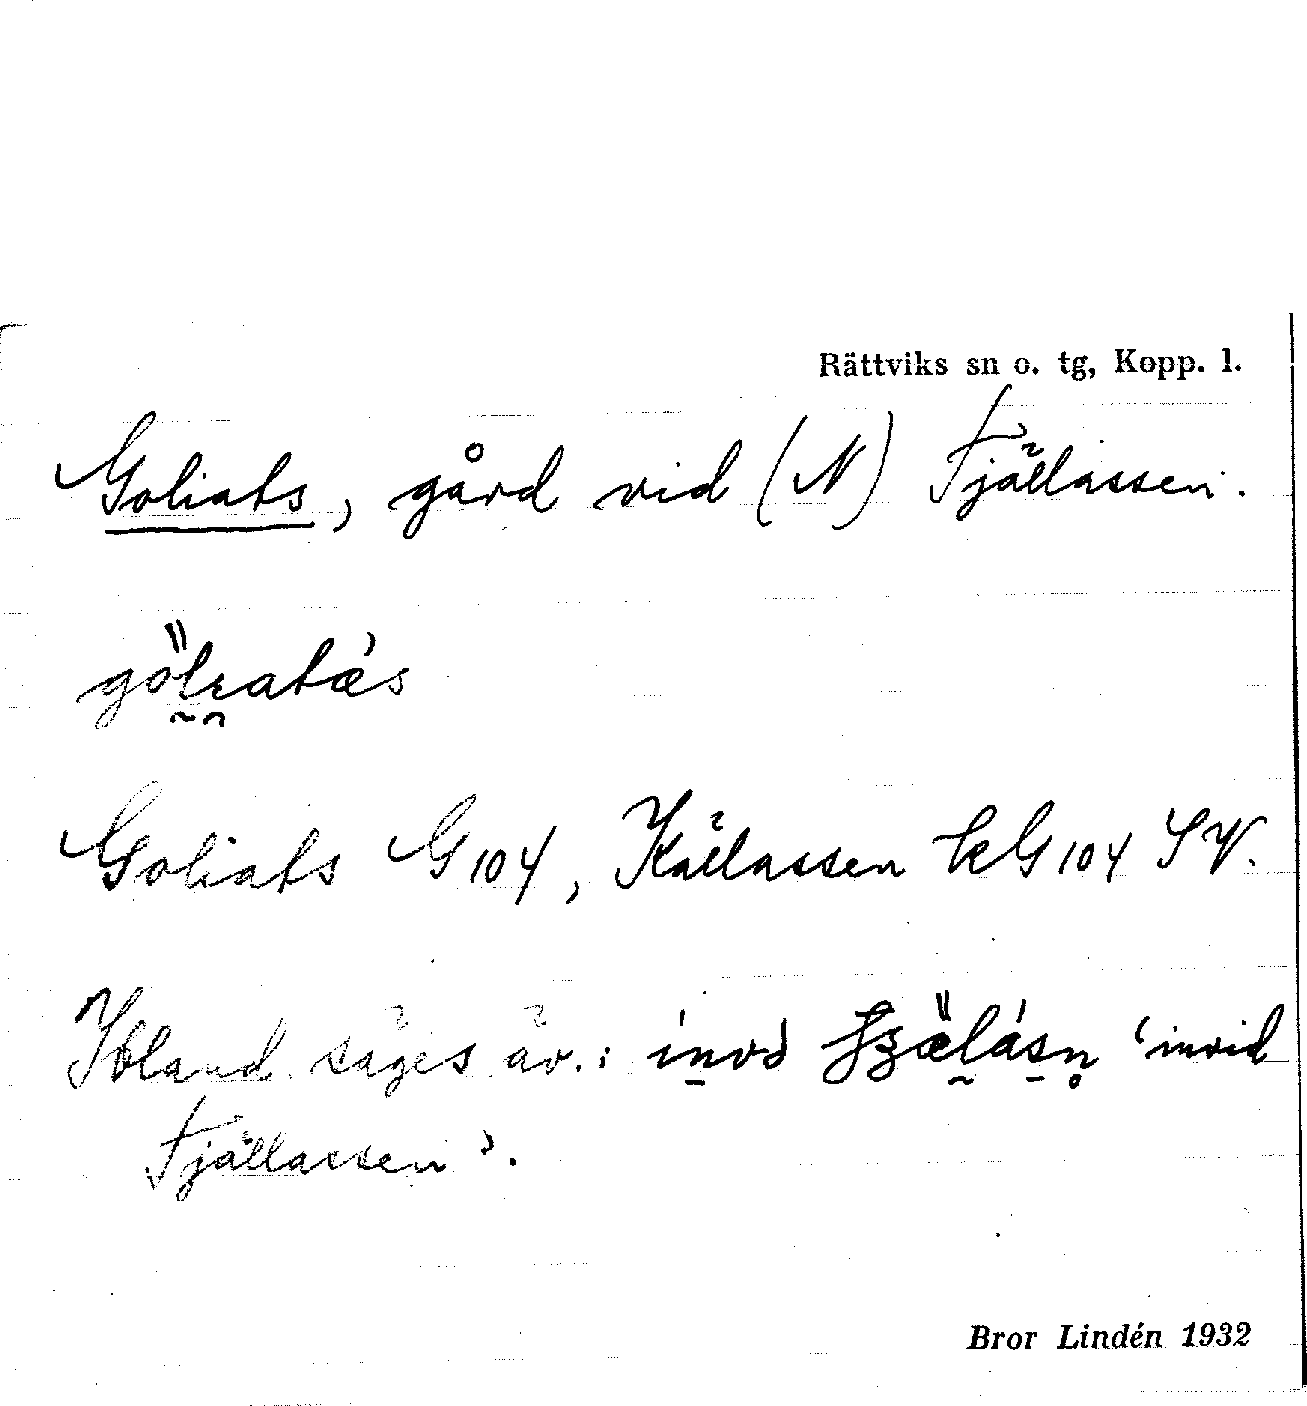 Rättviks sn o. tg, Kopp. l.
Goliats, gård vid (N) Fjällassen.
Goliats G 104, Källassen kG 104 SV.
Ibland säges äv.: 'invid
Fjällassen'.
Bror Lindén 1932